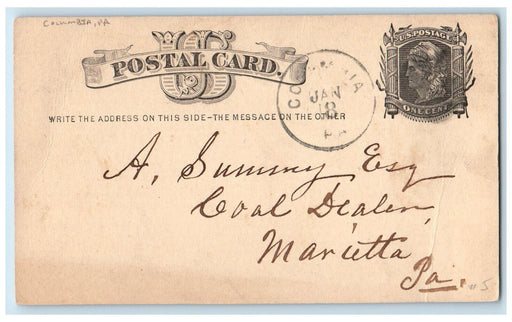 COLUMBIA, PA
U.S. POSTAGE
US
POSTAL CARD.
ONE CENT
COLUMBIA
JAN
PA
WRITE THE ADDRESS ON THIS SIDE-THE MESSAGE ON THE OTHER
A. Summy Esq
Coal Dealer,
Marietta
Pa.